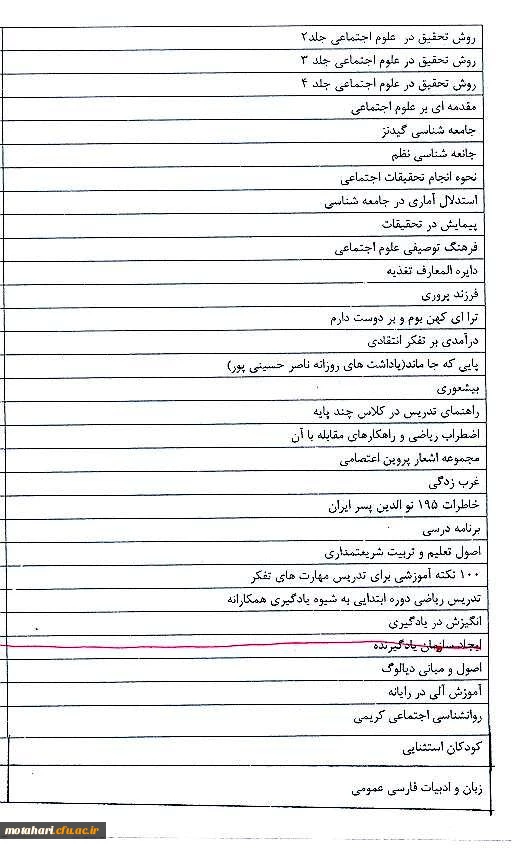 روش تحقیق در علوم اجتماعی جلد۲
روش تحقیق در علوم اجتماعی جلد ۳
روش تحقیق در علوم اجتماعی جلد ۴
مقدمه ای بر علوم اجتماعی
جامعه شناسی گیدنز
جانعه شناسی نظم
نحوه انجام تحقیقات اجتماعی
استدلال آماری در جامعه شناسی
پیمایش در تحقیقات
فرهنگ توصیفی علوم اجتماعی
دایره المعارف تغذیه
فرزند پروری
ترا ای کهن بوم و بر دوست دارم
درآمدی بر تفکر انتقادی
پایی که جا ماند(یاداشت های روزانه ناصر حسینی پور)
بیشعوری
راهنمای تدریس در کلاس چند پایه
اضطراب ریاضی و راهکارهای مقابله با آن
مجموعه اشعار پروین اعتصامی
غرب زدگی
خاطرات ۱۹۵ نو الدین پسر ایران
برنامه درسی
اصول تعلیم و تربیت شریعتمداری
۱۰۰ نکته آموزشی برای تدریس مهارت های تفکر
تدریس ریاضی دوره ابتدایی به شیوه یادگیری همکارانه
انگیزش در یادگیری
ایجاد سازمان یادگیرنده
اصول و مبانی دیالوگ
آموزش آلی در رایانه
روانشناسی اجتماعی کریمی
کودکان استثنایی
زبان و ادبیات فارسی عمومی
motahari.cfu.ac.ir